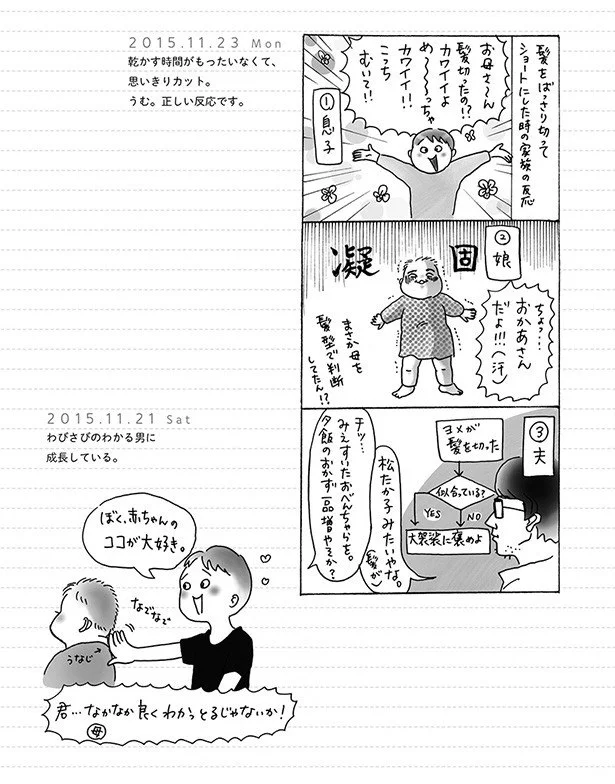 2015.11.23 Mon
乾かす時間がもったいなくて、
思いきりカット。
うむ。正しい反応です。
髪をばっさり切って
ショートにした時の家族の反応
①息子
お母さ〜ん
髪切ったの!?
カワイイよ
め〜〜〜っちゃ
カワイイ!!
こっち
むいて!!
②娘
凝固
ちょっ…
おかあさん
だよ!!!(汗)
まさか母を
髪型で判断
してたん!?
③夫
ヨメが
髪を切った
似合っている?
YES
NO
大袈裟に褒めよ
松たか子みたいやな。
(髪が)
チッ…
みえすいたおべんちゃらを。
夕飯のおかず一品増やろか?
2015.11.21 Sat
わびさびのわかる男に
成長している。
ぼく、赤ちゃんの
ココが大好き。
なでなで
うなじ
君…なかなか良くわかっとるじゃないか!
母